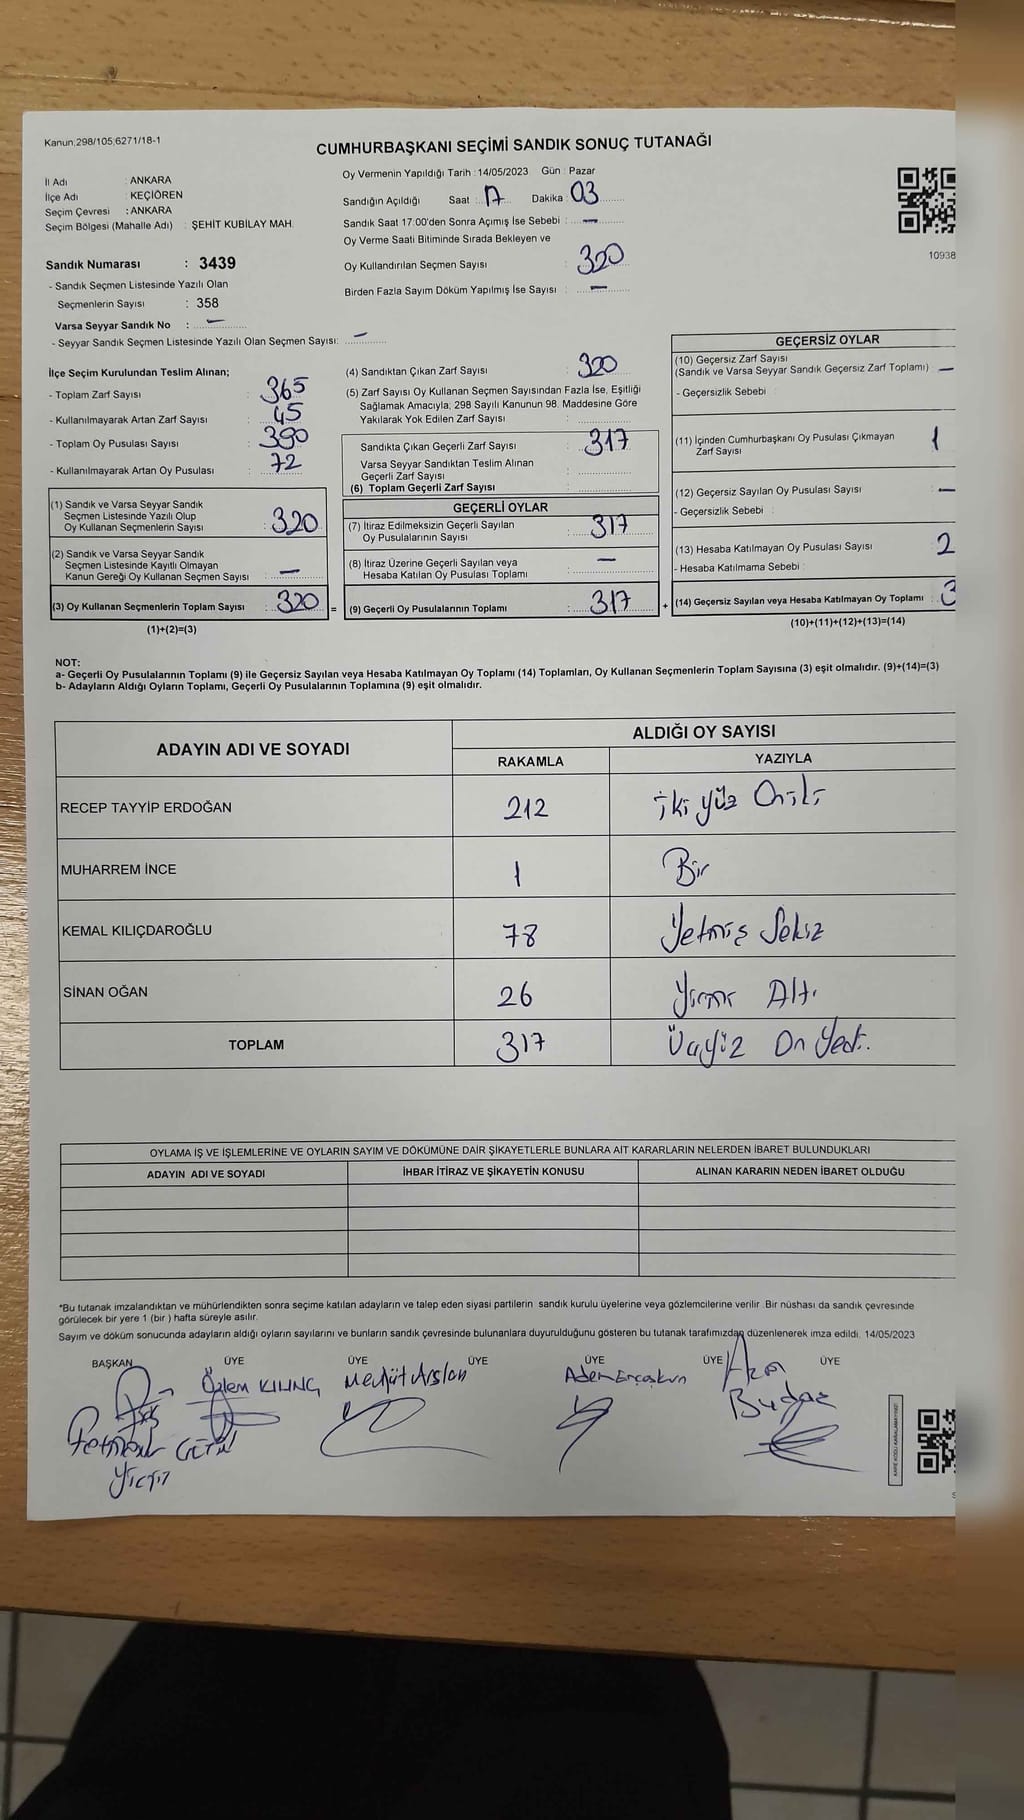 Kanun;298/105;6271/18-1
CUMHURBAŞKANI SEÇİMİ SANDIK SONUÇ TUTANAĞI
İl Adı : ANKARA
İlçe Adı : KEÇİÖREN
Seçim Çevresi : ANKARA
Seçim Bölgesi (Mahalle Adı) : ŞEHİT KUBİLAY MAH.
Sandık Numarası : 3439
- Sandık Seçmen Listesinde Yazılı Olan
Seçmenlerin Sayısı : 358
Varsa Seyyar Sandık No : —
- Seyyar Sandık Seçmen Listesinde Yazılı Olan Seçmen Sayısı: —
Oy Vermenin Yapıldığı Tarih : 14/05/2023 Gün : Pazar
Sandığın Açıldığı Saat : 17 Dakika : 03
Sandık Saat 17.00'den Sonra Açımış İse Sebebi : —
Oy Verme Saati Bitiminde Sırada Bekleyen ve
Oy Kullandırılan Seçmen Sayısı : 320
Birden Fazla Sayım Döküm Yapılmış İse Sayısı : —
10938
İlçe Seçim Kurulundan Teslim Alınan;
- Toplam Zarf Sayısı : 365
- Kullanılmayarak Artan Zarf Sayısı : 45
- Toplam Oy Pusulası Sayısı : 390
- Kullanılmayarak Artan Oy Pusulası : 72
(1) Sandık ve Varsa Seyyar Sandık
Seçmen Listesinde Yazılı Olup
Oy Kullanan Seçmenlerin Sayısı : 320
(2) Sandık ve Varsa Seyyar Sandık
Seçmen Listesinde Kayıtlı Olmayan
Kanun Gereği Oy Kullanan Seçmen Sayısı : —
(3) Oy Kullanan Seçmenlerin Toplam Sayısı : 320 =
(1)+(2)=(3)
(4) Sandıktan Çıkan Zarf Sayısı : 320
(5) Zarf Sayısı Oy Kullanan Seçmen Sayısından Fazla İse, Eşitliği
Sağlamak Amacıyla, 298 Sayılı Kanunun 98. Maddesine Göre
Yakılarak Yok Edilen Zarf Sayısı :
Sandıkta Çıkan Geçerli Zarf Sayısı : 317
Varsa Seyyar Sandıktan Teslim Alınan
Geçerli Zarf Sayısı :
(6) Toplam Geçerli Zarf Sayısı :
GEÇERLİ OYLAR
(7) İtiraz Edilmeksizin Geçerli Sayılan
Oy Pusulalarının Sayısı : 317
(8) İtiraz Üzerine Geçerli Sayılan veya
Hesaba Katılan Oy Pusulası Toplamı : —
(9) Geçerli Oy Pusulalarının Toplamı : 317 +
GEÇERSİZ OYLAR
(10) Geçersiz Zarf Sayısı
(Sandık ve Varsa Seyyar Sandık Geçersiz Zarf Toplamı) : —
- Geçersizlik Sebebi :
(11) İçinden Cumhurbaşkanı Oy Pusulası Çıkmayan
Zarf Sayısı : 1
(12) Geçersiz Sayılan Oy Pusulası Sayısı : —
- Geçersizlik Sebebi :
(13) Hesaba Katılmayan Oy Pusulası Sayısı : 2
- Hesaba Katılmama Sebebi :
(14) Geçersiz Sayılan veya Hesaba Katılmayan Oy Toplamı : 3
(10)+(11)+(12)+(13)=(14)
NOT:
a- Geçerli Oy Pusulalarının Toplamı (9) ile Geçersiz Sayılan veya Hesaba Katılmayan Oy Toplamı (14) Toplamları, Oy Kullanan Seçmenlerin Toplam Sayısına (3) eşit olmalıdır. (9)+(14)=(3)
b- Adayların Aldığı Oyların Toplamı, Geçerli Oy Pusulalarının Toplamına (9) eşit olmalıdır.
ADAYIN ADI VE SOYADI ALDIĞI OY SAYISI
RAKAMLA YAZIYLA
RECEP TAYYİP ERDOĞAN 212 iki yüz Oniki
MUHARREM İNCE 1 Bir
KEMAL KILIÇDAROĞLU 78 Yetmiş Sekiz
SİNAN OĞAN 26 Yirmi Altı
TOPLAM 317 Üçyüz On Yedi
OYLAMA İŞ VE İŞLEMLERİNE VE OYLARIN SAYIM VE DÖKÜMÜNE DAİR ŞİKAYETLERLE BUNLARA AİT KARARLARIN NELERDEN İBARET BULUNDUKLARI
ADAYIN ADI VE SOYADI İHBAR İTİRAZ VE ŞİKAYETİN KONUSU ALINAN KARARIN NEDEN İBARET OLDUĞU
*Bu tutanak imzalandıktan ve mühürlendikten sonra seçime katılan adayların ve talep eden siyasi partilerin sandık kurulu üyelerine veya gözlemcilerine verilir .Bir nüshası da sandık çevresinde
görülecek bir yere 1 (bir ) hafta süreyle asılır.
Sayım ve döküm sonucunda adayların aldığı oyların sayılarını ve bunların sandık çevresinde bulunanlara duyurulduğunu gösteren bu tutanak tarafımızdan düzenlenerek imza edildi. 14/05/2023
BAŞKAN ÜYE ÜYE ÜYE ÜYE ÜYE ÜYE
Özlem KILINÇ Mevlüt Arslan